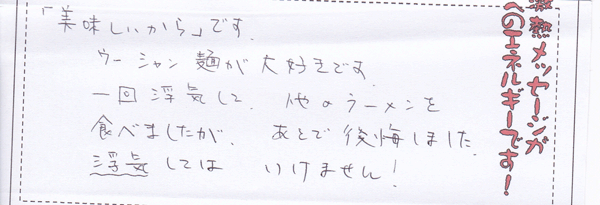 「美味しいから」です。
ウーシャン麺が大好きです。
一回浮気して、他のラーメンを
食べましたが、あとで後悔しました。
浮気してはいけません！
激熱メッセージが
へのエネルギーです！